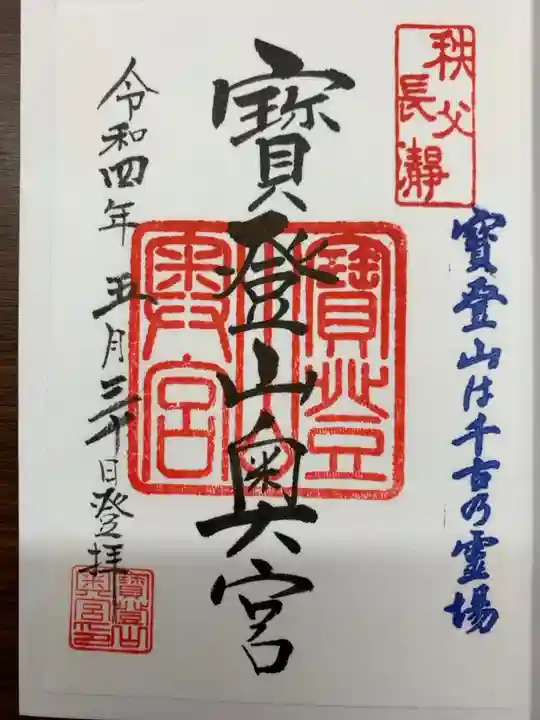 秩父
長瀞
寶登山は千古乃霊場
寶登山奥宮
寶登山
奥宮
令和四年五月三十日登拝
寶登山
奥宮印